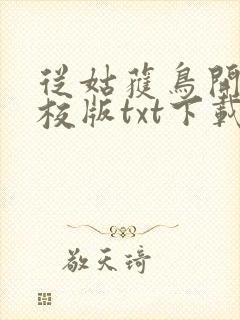 從姑獲鳥開
校版txt下載
敬天琦